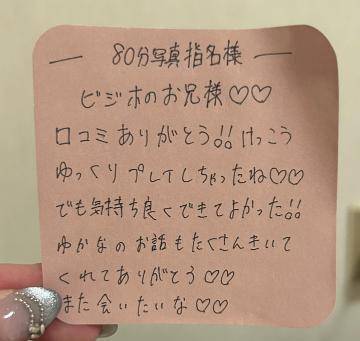 ― 80分写真指名様 ―
ビジホのお兄様♡♡
口コミありがとう!! けっこう
ゆっくりプレイしちゃったね♡♡
でも気持ち良くできてよかった!!
ゆかなのお話もたくさんきいて
くれてありがとう♡♡
また会いたいな♡♡